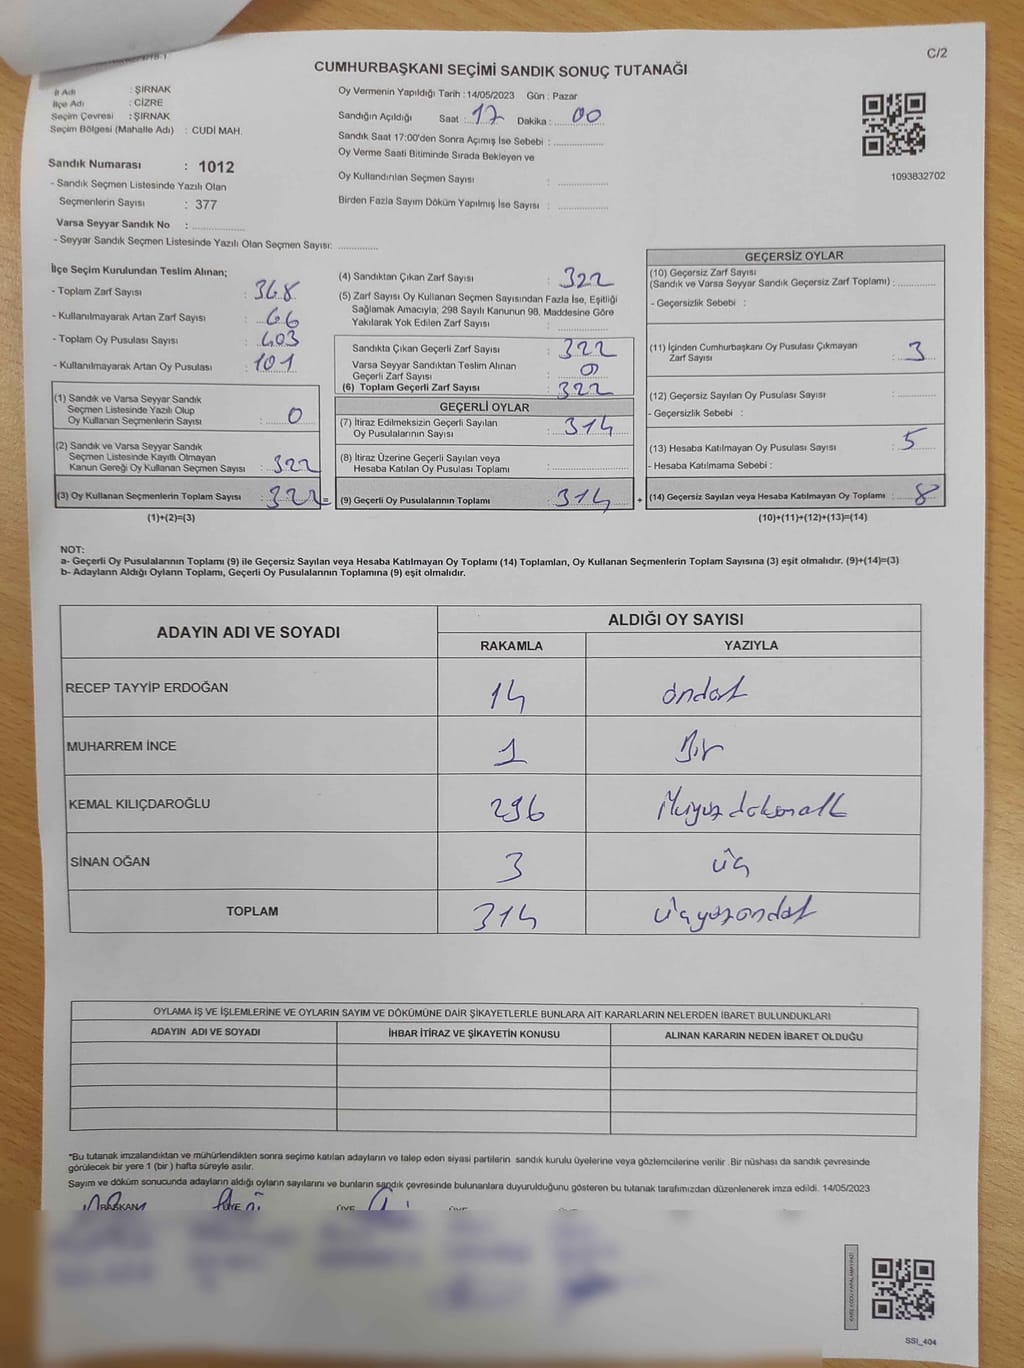 C/2
CUMHURBAŞKANI SEÇİMİ SANDIK SONUÇ TUTANAĞI
İl Adı : ŞIRNAK
İlçe Adı : CİZRE
Seçim Çevresi : ŞIRNAK
Seçim Bölgesi (Mahalle Adı) : CUDİ MAH.
Sandık Numarası : 1012
- Sandık Seçmen Listesinde Yazılı Olan
Seçmenlerin Sayısı : 377
Varsa Seyyar Sandık No : ................
- Seyyar Sandık Seçmen Listesinde Yazılı Olan Seçmen Sayısı: ............
Oy Vermenin Yapıldığı Tarih : 14/05/2023 Gün : Pazar
Sandığın Açıldığı Saat : 17 Dakika : 00
Sandık Saat 17:00'den Sonra Açımış İse Sebebi : ................
Oy Verme Saati Bitiminde Sırada Bekleyen ve
Oy Kullandırılan Seçmen Sayısı : ................
Birden Fazla Sayım Döküm Yapılmış İse Sayısı : ................
1093832702
İlçe Seçim Kurulundan Teslim Alınan;
- Toplam Zarf Sayısı : 368
- Kullanılmayarak Artan Zarf Sayısı : 66
- Toplam Oy Pusulası Sayısı : 403
- Kullanılmayarak Artan Oy Pusulası : 101
(1) Sandık ve Varsa Seyyar Sandık
Seçmen Listesinde Yazılı Olup
Oy Kullanan Seçmenlerin Sayısı : 0
(2) Sandık ve Varsa Seyyar Sandık
Seçmen Listesinde Kayıtlı Olmayan
Kanun Gereği Oy Kullanan Seçmen Sayısı : 322
(3) Oy Kullanan Seçmenlerin Toplam Sayısı : 322 =
(1)+(2)=(3)
(4) Sandıktan Çıkan Zarf Sayısı : 322
(5) Zarf Sayısı Oy Kullanan Seçmen Sayısından Fazla İse, Eşitliği
Sağlamak Amacıyla; 298 Sayılı Kanunun 98. Maddesine Göre
Yakılarak Yok Edilen Zarf Sayısı : ................
Sandıkta Çıkan Geçerli Zarf Sayısı : 322
Varsa Seyyar Sandıktan Teslim Alınan
Geçerli Zarf Sayısı : 0
(6) Toplam Geçerli Zarf Sayısı : 322
GEÇERLİ OYLAR
(7) İtiraz Edilmeksizin Geçerli Sayılan
Oy Pusulalarının Sayısı : 314
(8) İtiraz Üzerine Geçerli Sayılan veya
Hesaba Katılan Oy Pusulası Toplamı : ................
(9) Geçerli Oy Pusulalarının Toplamı : 314 +
GEÇERSİZ OYLAR
(10) Geçersiz Zarf Sayısı
(Sandık ve Varsa Seyyar Sandık Geçersiz Zarf Toplamı) : ............
- Geçersizlik Sebebi :
(11) İçinden Cumhurbaşkanı Oy Pusulası Çıkmayan
Zarf Sayısı : 3
(12) Geçersiz Sayılan Oy Pusulası Sayısı : ............
- Geçersizlik Sebebi :
(13) Hesaba Katılmayan Oy Pusulası Sayısı : 5
- Hesaba Katılmama Sebebi :
(14) Geçersiz Sayılan veya Hesaba Katılmayan Oy Toplamı : 8
(10)+(11)+(12)+(13)=(14)
NOT:
a- Geçerli Oy Pusulalarının Toplamı (9) ile Geçersiz Sayılan veya Hesaba Katılmayan Oy Toplamı (14) Toplamları, Oy Kullanan Seçmenlerin Toplam Sayısına (3) eşit olmalıdır. (9)+(14)=(3)
b- Adayların Aldığı Oyların Toplamı, Geçerli Oy Pusulalarının Toplamına (9) eşit olmalıdır.
ADAYIN ADI VE SOYADI ALDIĞI OY SAYISI
RAKAMLA YAZIYLA
RECEP TAYYİP ERDOĞAN 14 ondört
MUHARREM İNCE 1 Bir
KEMAL KILIÇDAROĞLU 296 ikiyüzdoksanaltı
SİNAN OĞAN 3 üç
TOPLAM 314 üçyüzondört
OYLAMA İŞ VE İŞLEMLERİNE VE OYLARIN SAYIM VE DÖKÜMÜNE DAİR ŞİKAYETLERLE BUNLARA AİT KARARLARIN NELERDEN İBARET BULUNDUKLARI
ADAYIN ADI VE SOYADI İHBAR İTİRAZ VE ŞİKAYETİN KONUSU ALINAN KARARIN NEDEN İBARET OLDUĞU
*Bu tutanak imzalandıktan ve mühürlendikten sonra seçime katılan adayların ve talep eden siyasi partilerin sandık kurulu üyelerine veya gözlemcilerine verilir .Bir nüshası da sandık çevresinde
görülecek bir yere 1 (bir ) hafta süreyle asılır.
Sayım ve döküm sonucunda adayların aldığı oyların sayılarını ve bunların sandık çevresinde bulunanlara duyurulduğunu gösteren bu tutanak tarafımızdan düzenlenerek imza edildi. 14/05/2023
BAŞKAN
SSI_404